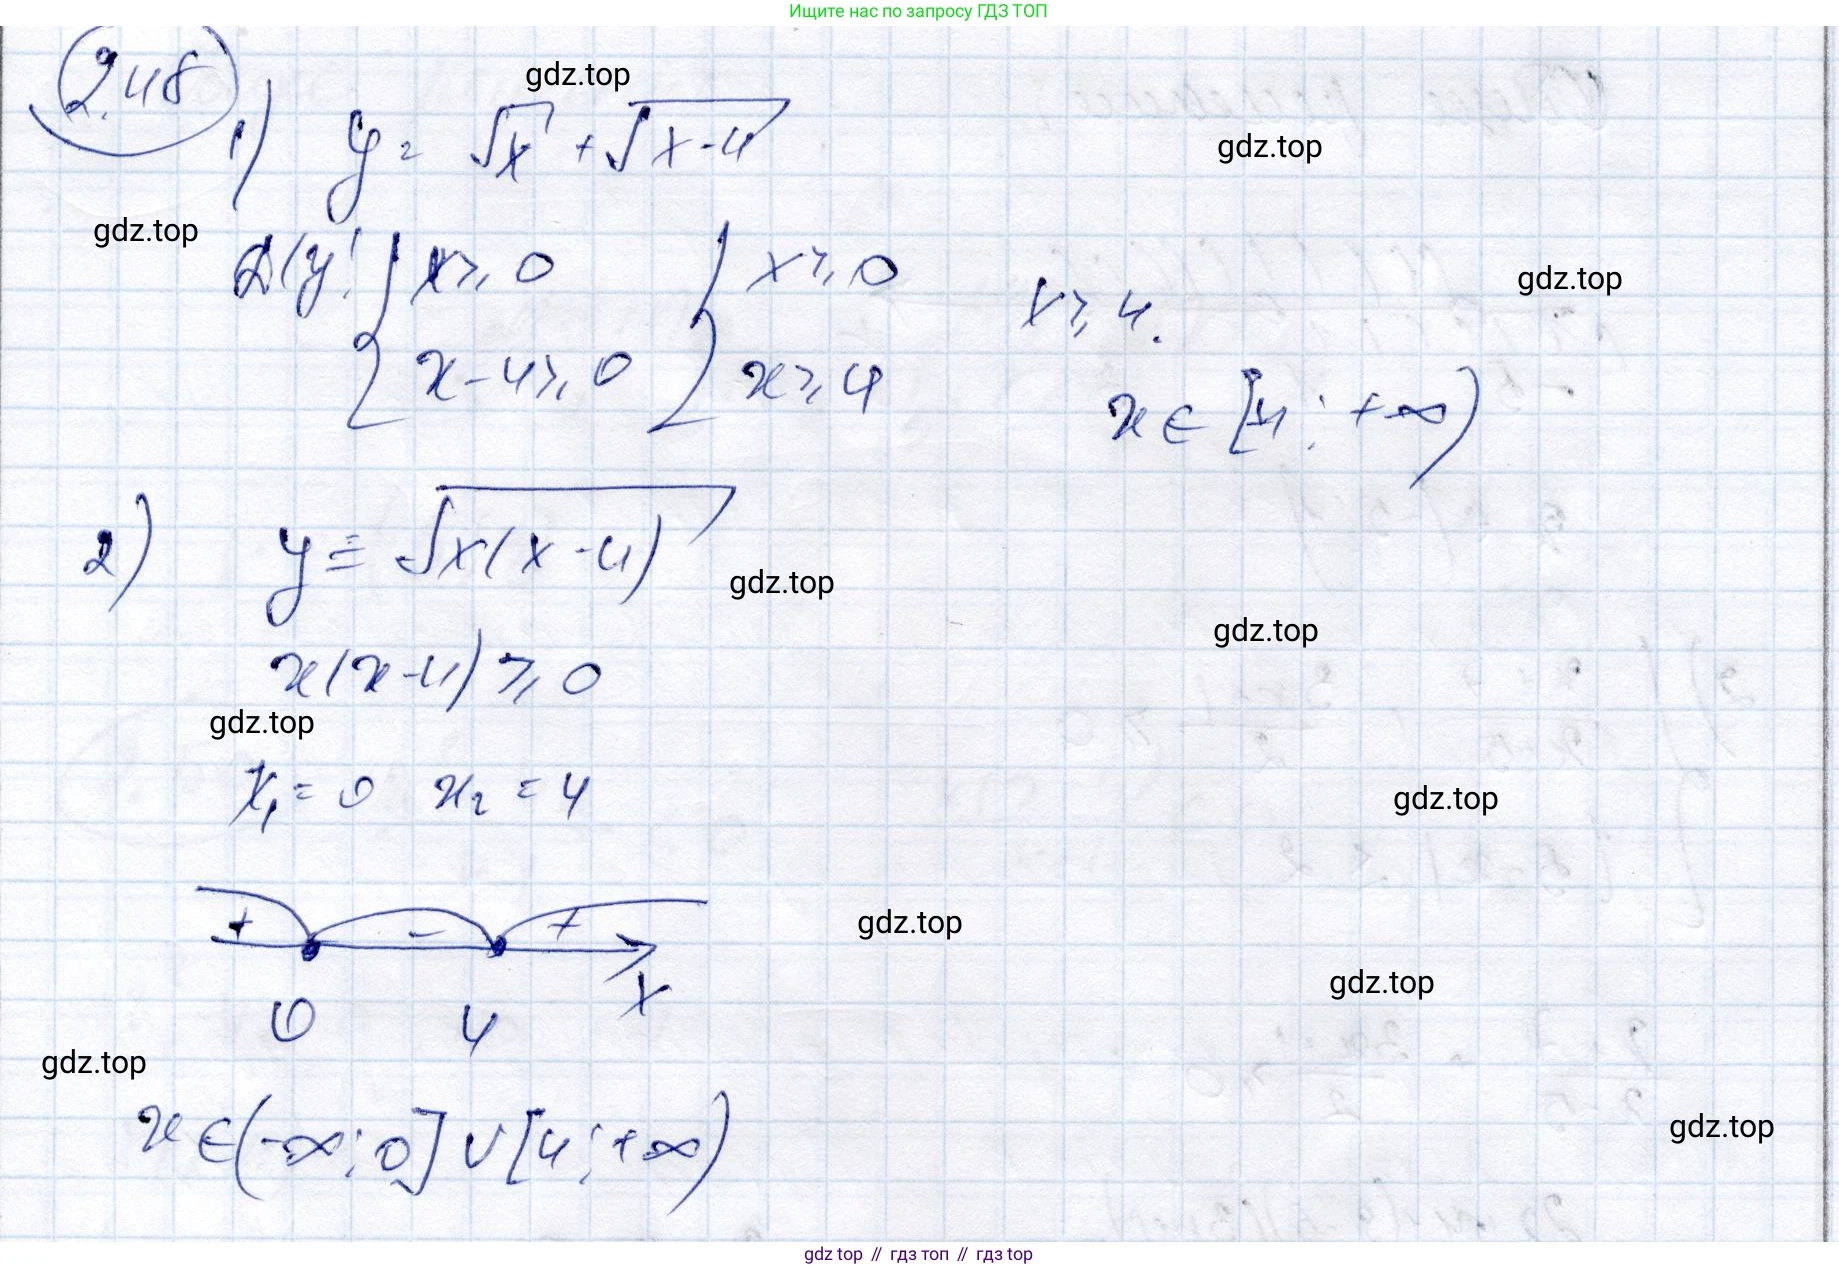 Ищите нас по запросу ГДЗ ТОП
2.48
gdz.top
1) y = √x + √x-4
gdz.top
gdz.top
D(y) { x ≥ 0 { x ≥ 0 x ≥ 4.
{ x - 4 ≥ 0 { x ≥ 4 x ∈ [4; +∞)
gdz.top
2) y = √x(x-4)
gdz.top
gdz.top
x(x-4) ≥ 0
gdz.top
x₁ = 0 x₂ = 4
gdz.top
+ - +
gdz.top
gdz.top
0 4 x
gdz.top
x ∈ (-∞; 0] ∪ [4; +∞)
gdz.top
gdz top // гдз топ // gdz top